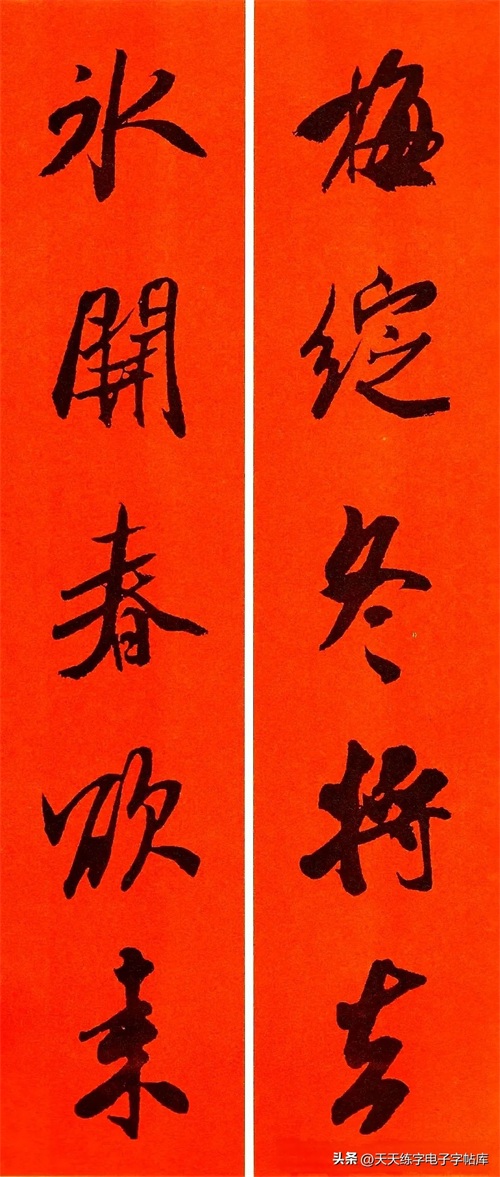 梅綻冬將去
氷開春欲來
头条 @天天练字电子字帖库